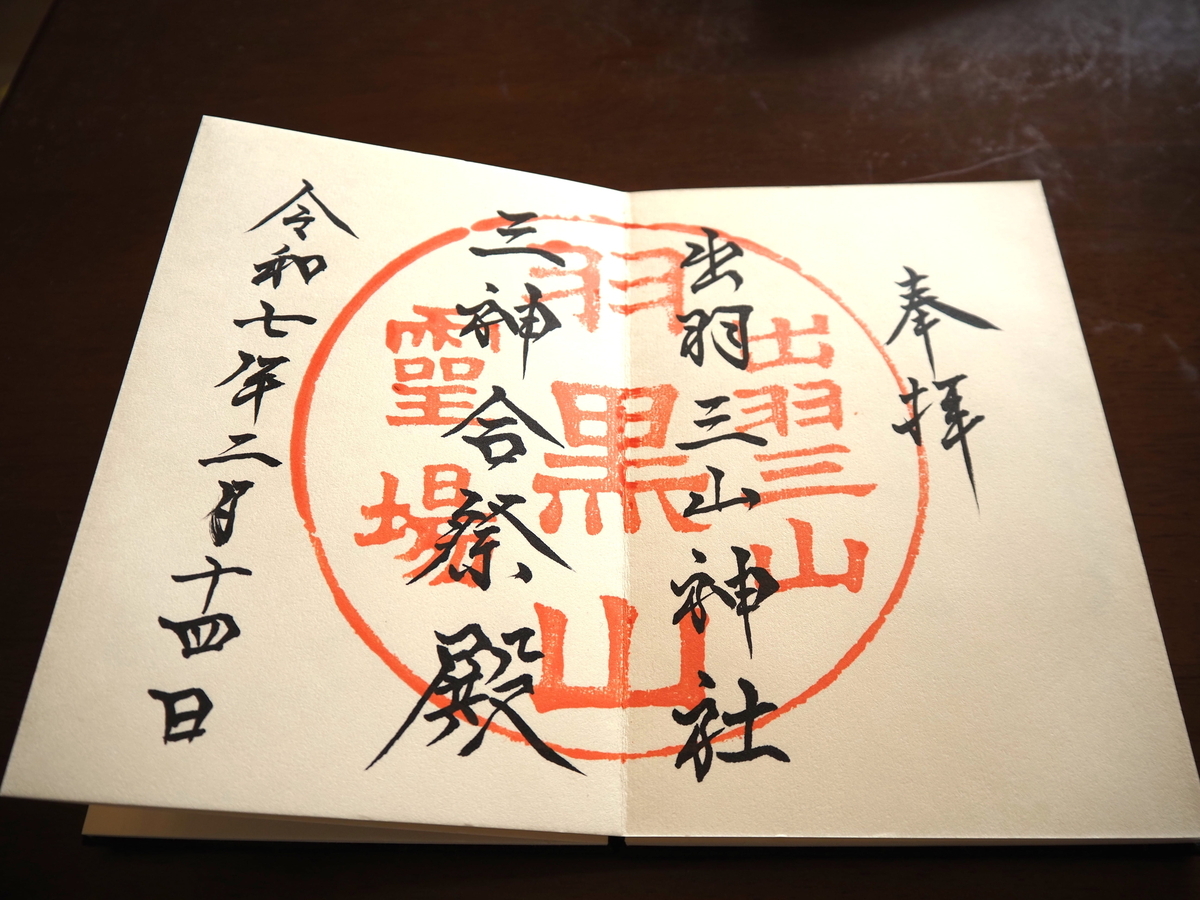 奉拝
出羽三山神社
三神合祭殿
令和七年二月十四日
出羽三山
羽黒山
霊場